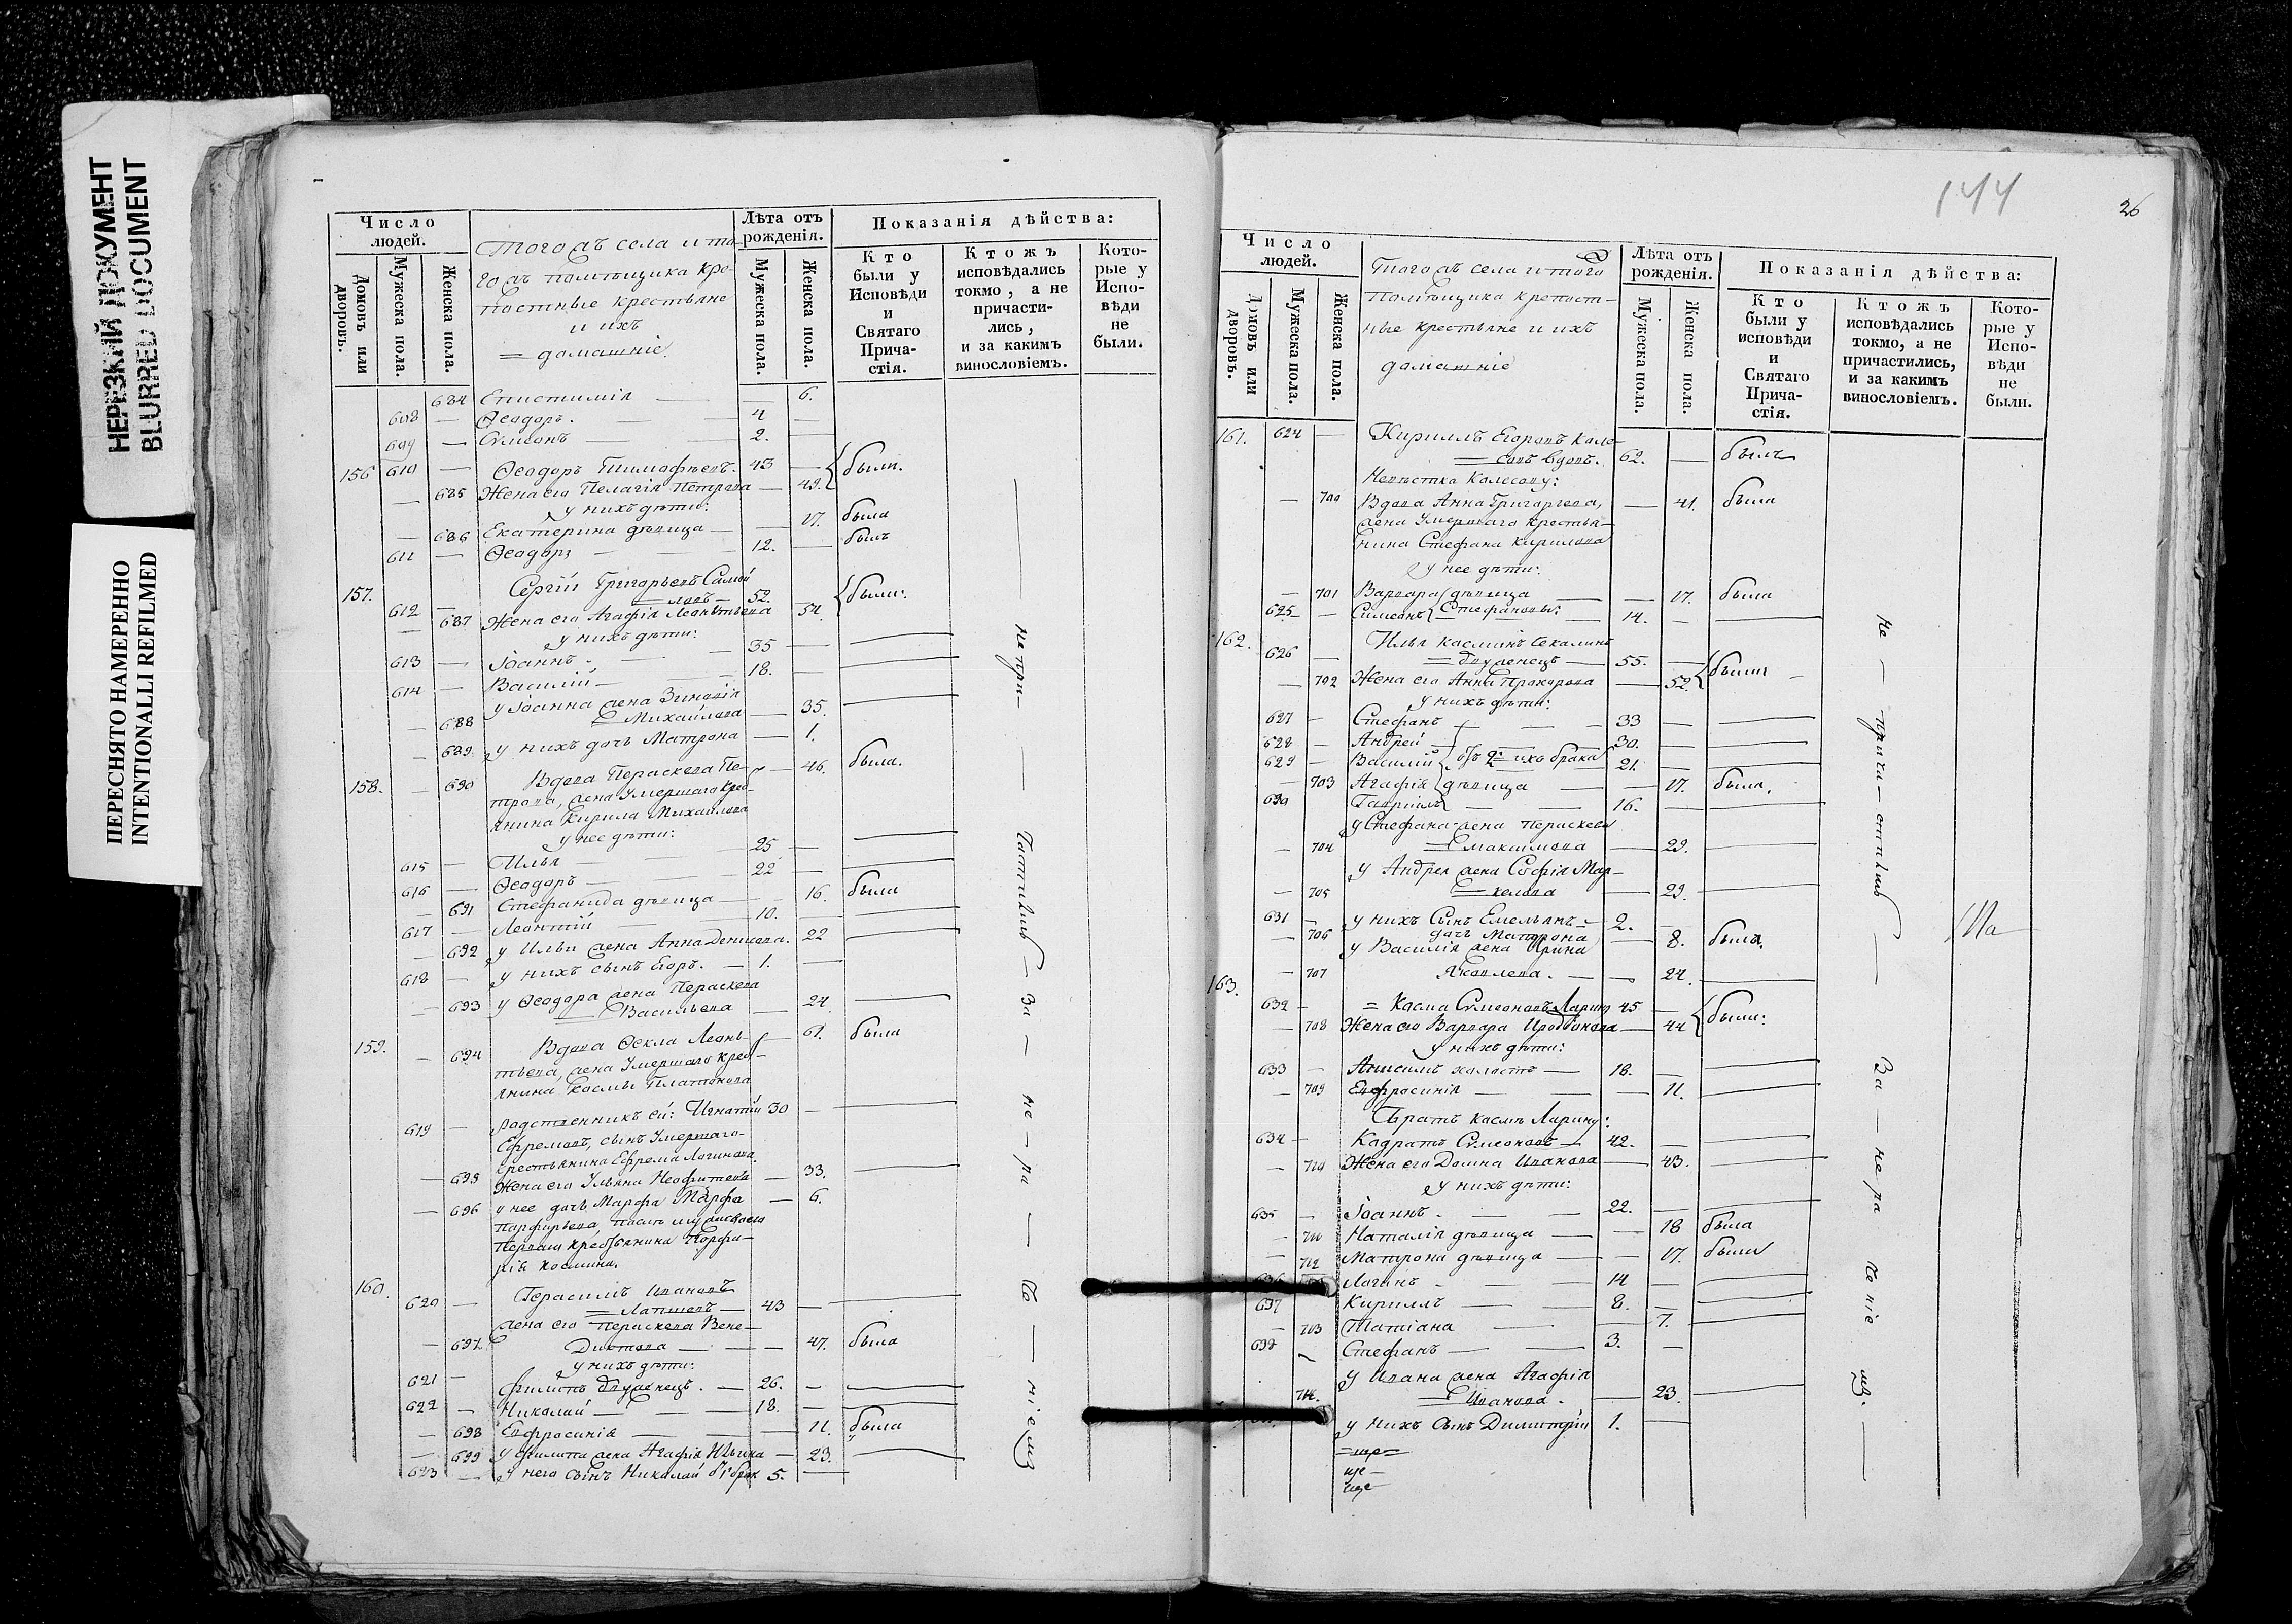 НЕРЕЗКИЙ ДОКУМЕНТ
BLURRED DOCUMENT
ПЕРЕСНЯТО НАМЕРЕННО
INTENTIONALLI REFILMED
Число людей.
Домовъ или дворовъ.
Мужеска пола.
Женска пола.
Тогожъ села и то-
гожъ помѣщика кре-
постные крестьяне
и ихъ
= домашніе.
Лѣта отъ рожденія.
Мужеска пола.
Женска пола.
Показанія дѣйства:
Кто были у Исповѣди и Святаго Прича-стія.
Ктожъ исповѣдались токмо, а не причасти-лись, и за какимъ винословіемъ.
Кото-рые у Испо-вѣди не были.
684 Епистимія — 6.
608 — Ѳеодоръ. 4 —
609 — Сѵмеонъ 2. —
156 610 — Ѳеодоръ Тимофѣевъ. 43 — были.
— 685 Жена его Пелагія Петрова — 49.
у нихъ дѣти:
— 686 Екатерина дѣвица — 17. была
611 — Ѳеодоръ 12. — былъ
157. Сергій Григорьевъ Самой
612 — =ловъ — 52. были:
— 687 Жена его Агафія Леонтьева 54.
у нихъ дѣти:
613 — Іоаннъ — 35 —
614 — Василій — 18. —
у Іоанна жена Зиновія
— 688 = Михайлова — 35.
— 689 у нихъ дочь Матрона — 1.
158. — 690 Вдова Параскева Пе- — 46. была.
трова, жена умершаго кре-
янина Кирила Михайлова
у нее дѣти:
615 — Илья — 25 —
616 — Ѳеодоръ — 22 —
— 691 Стефанида дѣвица — 16. была
617 — Леонтій 10. —
— 692 у Ильи жена Анна Денисова. 22
618 — у нихъ сынъ Егоръ. — 1. —
у Ѳеодора жена Параскева
— 693 = Васильева — 24.
159. — 694 Вдова Ѳекла Леон- — 61. была
тьева, жена умершаго кре-
янина Космы Платонова
619 — родственникъ ей: Игнатій 30 —
Ефремовъ, сынъ умершаго
крестьянина Ефрема Логинова.
— 695 Жена его Ульяна Неофитова — 33.
— 696 у нее дочь Марфа — 6.
Порфирьева
крестьянина Порфи-
рія Космина.
160. Герасимъ Ивановъ
620 — = Лаптевъ — 43 —
жена его Параскева Вене-
— 697 диктова — 47. была
у нихъ дѣти:
621 — Филипъ двуженецъ. — 26. —
622 — Николай — 18. —
— 698 Евфросинія — 11. была
— 699 у Филипа жена Агафія Ильина — 23.
623 — у него сынъ Николай 5. —
не при-
частивш
— за —
не — ра
—
се —
ніемъ
144
26
Число людей.
Домовъ или дворовъ.
Мужеска пола.
Женска пола.
Тогожъ села и того
помѣщика крепост-
ные крестьяне и ихъ
домашніе
Лѣта отъ рожденія.
Мужеска пола.
Женска пола.
Показанія дѣйства:
Кто были у исповѣди и Святаго Прича-стія.
Ктожъ исповѣдались токмо, а не причастились, и за какимъ винословіемъ.
Кото-рые у Испо-вѣди не были.
161. 624 — Кирилъ Егоровъ Коле-
= совъ вдовъ. 62. — былъ
Невѣстка Колесову:
— 700 Вдова Анна Григорьева, — 41. была
жена умершаго крестья-
нина Стефана Кирилова
у нее дѣти:
— 701 Варвара дѣвица — 17. была
625 — Симеонъ Стефановы: 14. —
162. Илья Касминъ Секалинъ
626 — = двуженецъ — 55. — были
— 702 Жена его Анна Прохорова — 52.
у нихъ дѣти:
627 — Стефанъ — 33 —
628 — Андрей — 30. —
629 — Василій отъ 2 ихъ брака 21. —
— 703 Агафія дѣвица — 17. была.
630 Гавріилъ — 16. —
у Стефана жена Параскева
— 704 = Максимова — 29.
у Андрея жена Софія Мар-
— 705 = келова — 29.
631 — у нихъ сынъ Емельянъ — 2. —
— 706 дочь Матрона — 8. была.
у Василія жена Ирина
— 707 Яковлева. — 24.
163.
632 — = Касма Сѵмеоновъ Ларинъ 45 — были:
— 708 Жена его Варвара Иродіонова — 44
у нихъ дѣти:
633 — Анисимъ холостъ — 18. —
— 709 Евфросинія — 11.
Братъ Касмѣ Ларину:
634 — Кодратъ Сѵмеоновъ — 42. —
— 710 Жена его Домна Иванова — 43.
у нихъ дѣти:
635 — Іоаннъ. — 22. —
— 711 Наталія дѣвица — 18 была
— 712 Матрона дѣвица — 17. была
636 Логинъ — 14 —
637 Кирилъ — 8. —
— 713 Татіана — 7.
638 Стефанъ — 3. —
у Ивана жена Агафія
714. = Иванова. — 23.
у нихъ сынъ Димитрій 1. —
не — прича — стивш —
За — нера
се ніе
мъ. —